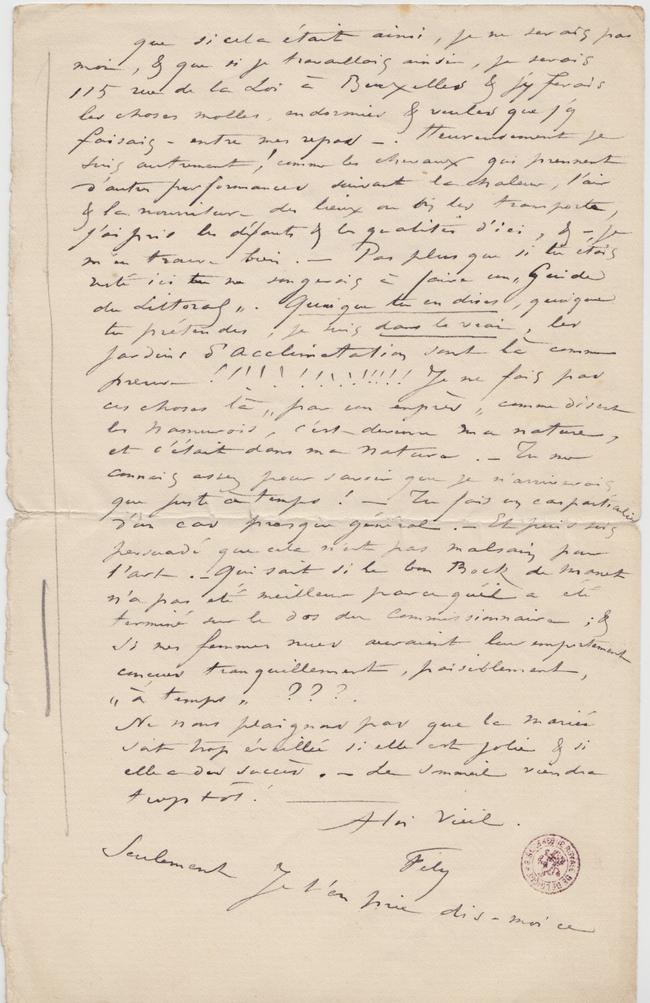 que si cela était ainsi, je ne serais pas
moi, & que si je travaillais ainsi, je serais
115 rue de la Loi à Bruxelles & j'y ferais
les choses molles, endormies & veules que j'y
faisais - entre mes repas -. Heureusement je
suis autrement ! comme les chevaux qui prennent
d'autres performances suivant la chaleur, l'air
& la nourriture des lieux où on les transporte,
j'ai pris les défauts & les qualités d'ici, & - je
m'en trouve bien. — Pas plus que si tu étais
resté ici tu ne songerais à faire un „Guide
du Littoral„. Quoique tu en dises, quoique
tu prétendes, je suis dans le vrai, les
jardins d'Acclimatation sont là comme
preuve !!!!! !!!!!!!! Je ne fais pas
ces choses là „par un exprès„ comme disent
les Namurois, c'est devenu ma nature,
et c'était dans ma nature. — Tu me
connais assez pour savoir que je n'arriverais
que juste à temps ! — Tu fais un cas particulier
d'un cas presque général. — Et puis suis
persuadé que cela n'est pas malsain pour
l'art. — Qui sait si le bon Bock de Manet
n'a pas été meilleur parcequ'il a été
terminé sur le dos du commissionnaire ; &
si mes femmes nues auraient leur emportement
conçues tranquillement, paisiblement,
„à temps„ ???.
Ne nous plaignons pas que la mariée
soit trop éveillée si elle est jolie & si
elle a du succès. — Le sommeil viendra
trop tôt !
A toi Vieil.
Fély
Seulement Je t'en prie dis-moi ce